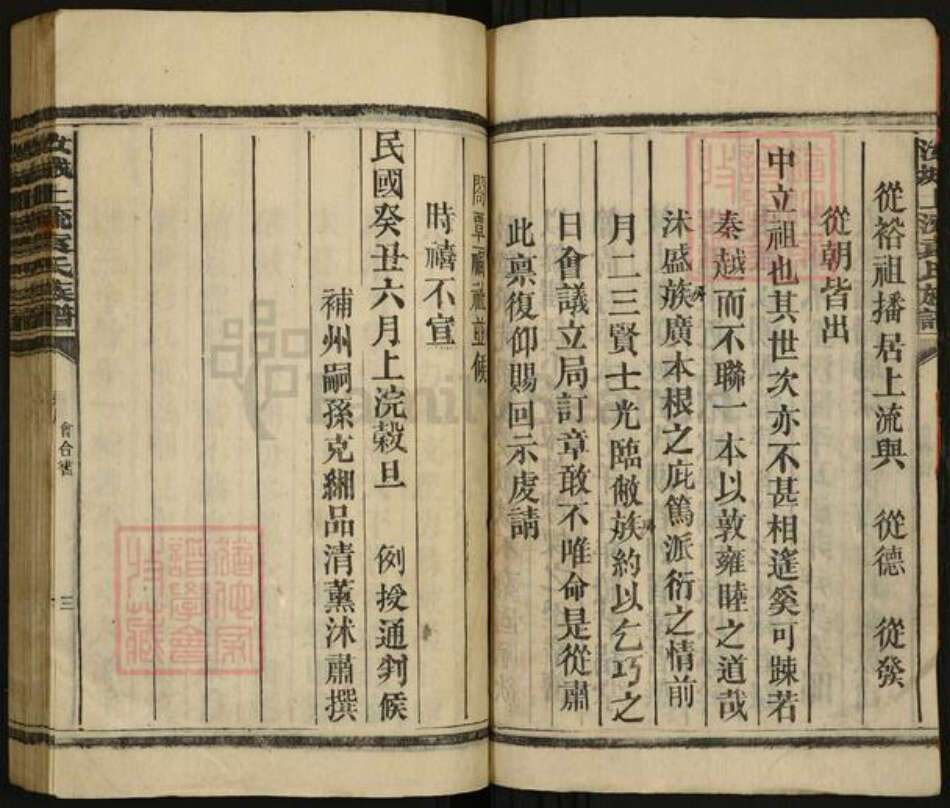 從裕祖播居上流與 從德 從發
從朝皆出
中立祖也其世次亦不甚相遙奚可踈若
秦越而不聯一本以敦雍睦之道哉
沐盛族廣本根之庇篤派衍之情前
月二三賢士光臨敝族約以乞巧之
日會議立局訂章敢不唯命是從肅
此稟復仰賜回示虔請
並候
時禧不宣
民國癸丑六月上浣穀旦 例授通判候
補州嗣孫克緗品清薰沐肅撰
上流袁氏族譜
會合書
三